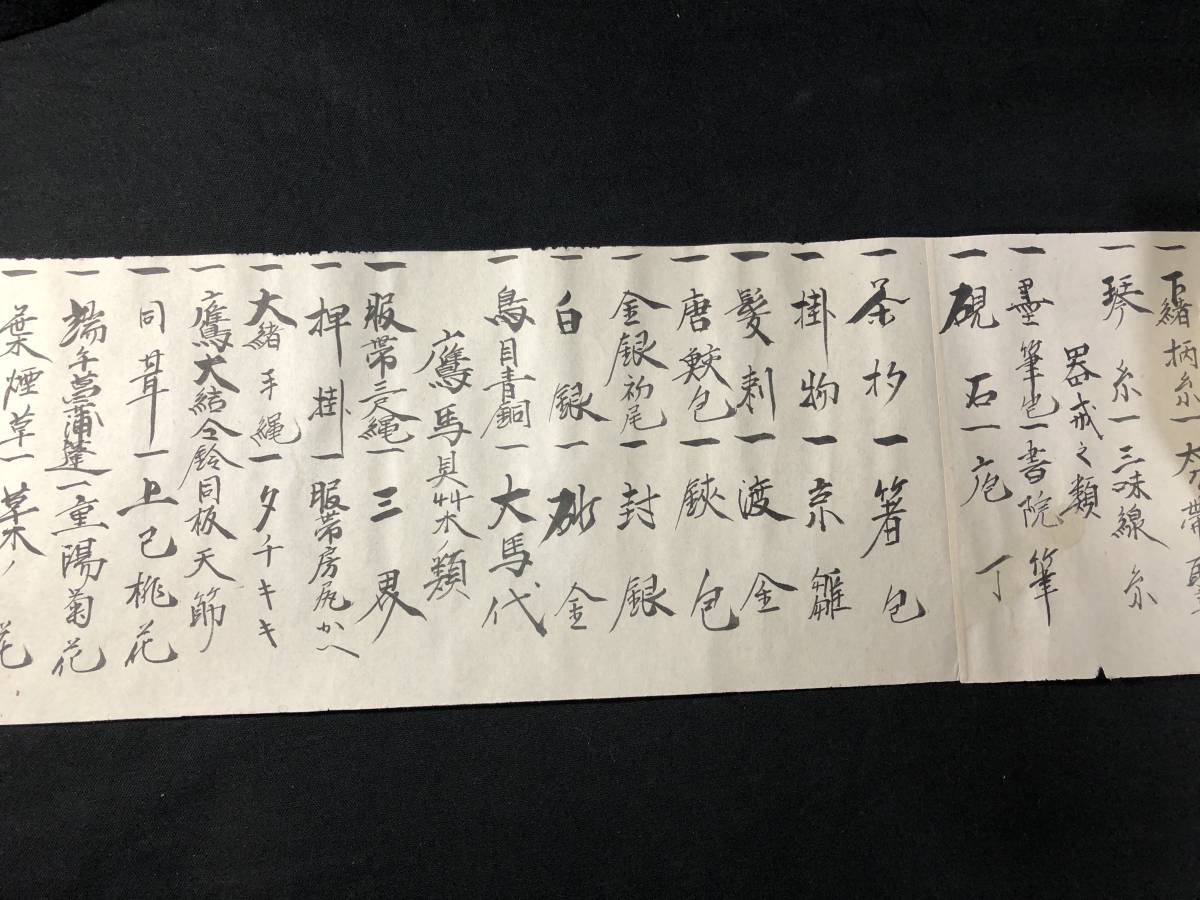 一下緒柄糸一太刀帯取
一琴糸一三味線糸
器戒之類
一墨筆包一書院筆
一硯石一庖丁
一茶杓一箸包
一掛物一京雛
一髪剃一渡金
一唐鮫包一鋏包
一金銀初尾一封銀
一白銀一砂金
一鳥目青銅一大馬代
鷹馬貝艸木ノ類
一服帯三尺縄一三界
一押掛一服帯房尻かへ
一大緒手縄一夕千キキ
一鷹大結仝鈴同板天節
一同茸一上巳桃花
一端午菖蒲蓬一重陽菊花
一葉煙草一草木ノ花